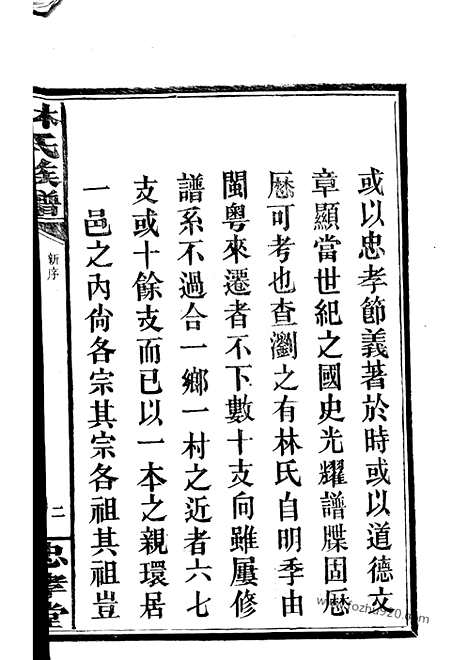 或以忠孝節義著於時或以道德文
章顯當世紀之國史光耀譜牒固歷
歷可考也查瀏之有林氏自明季由
閩粵來遷者不下數十支向雖屢修
譜系不過合一鄉一村之近者六七
支或十餘支而已以一本之親環居
一邑之內尙各宗其宗各祖其祖豈
林氏族譜
新序
二
忠孝堂
www.fozhu920.com